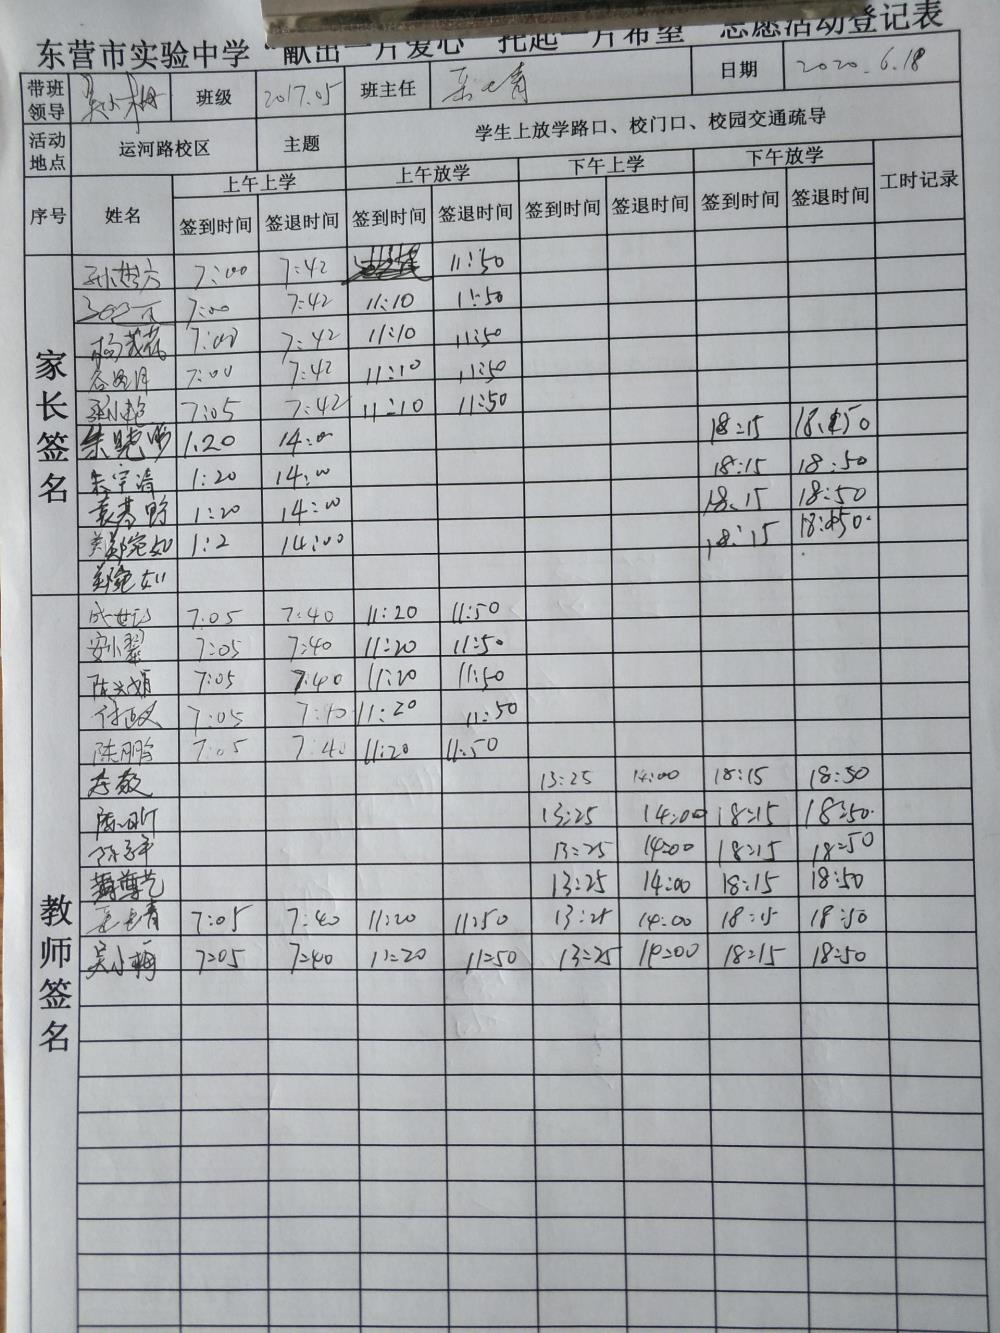 东营市实验中学“献出一片爱心 托起一片希望”志愿活动登记表
带班领导 吴小梅 班级 2017.05 班主任 日期 2020.6.18
活动地点 运河路校区 主题 学生上放学路口、校门口、校园交通疏导
序号 姓名 上午上学 上午放学 下午上学 下午放学 工时记录
签到时间 签退时间 签到时间 签退时间 签到时间 签退时间 签到时间 签退时间
家长签名
7:00 7:42 11:50
7:00 7:42 11:10 11:50
杨茂花 7:00 7:42 11:10 11:50
7:00 7:42 11:10 11:50
7:05 7:42 11:10 11:50
朱晓 1:20 14:00 18:15 18:50
朱宇清 1:20 14:00 18:15 18:50
袁春野 1:20 14:00 18:15 18:50
郑宛如 1:2 14:00 18:15 18:50
郑宛如
教师签名
7:05 7:40 11:20 11:50
安小翠 7:05 7:40 11:20 11:50
陈兴娟 7:05 7:40 11:20 11:50
付政文 7:05 7:40 11:20 11:50
陈丽鹃 7:05 7:40 11:20 11:50
13:25 14:00 18:15 18:50
13:25 14:00 18:15 18:50
13:25 14:00 18:15 18:50
13:25 14:00 18:15 18:50
7:05 7:40 11:20 11:50 13:25 14:00 18:15 18:50
吴小梅 7:05 7:40 11:20 11:50 13:25 14:00 18:15 18:50